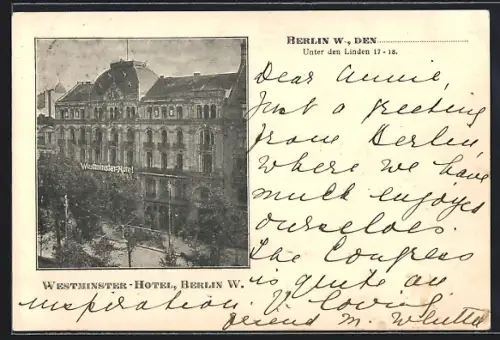 BERLIN W., DEN
Unter den Linden 17-18.
Dear Annie,
Just a greeting
from Berlin,
where we have
much enjoyed
ourselves.
The Congress
is quite an
inspiration. Yr loving
friend M.
Westminster-Hotel
WESTMINSTER-HOTEL, BERLIN W.